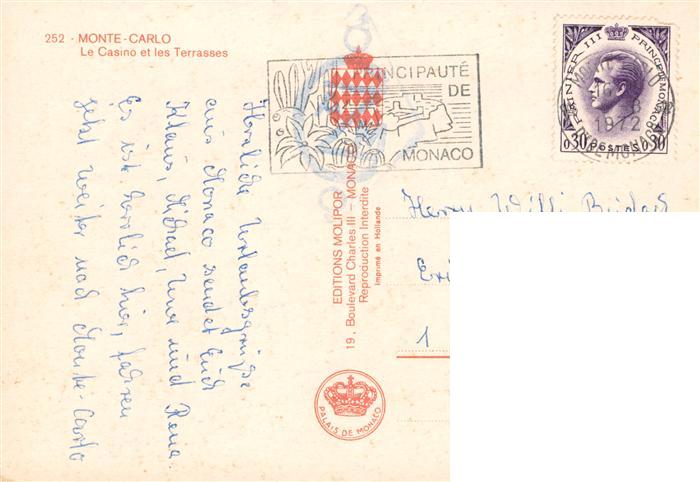 252 - MONTE-CARLO
Le Casino et les Terrasses
PRINCIPAUTÉ
DE
MONACO
RAINIER III PRINCE DE MONACO
0,30 POSTES 0,30
1972
Herzliche Urlaubsgrüße
aus Monaco sendet Euch
Klaus, Michael, Uwe und Rena.
Es ist herrlich hier, fahren
jetzt weiter nach Monte-Carlo
EDITIONS MOLIPOR
19, Boulevard Charles III – MONACO
Reproduction Interdite
Imprimé en Hollande
PALAIS DE MONACO
Herrn Willi
1